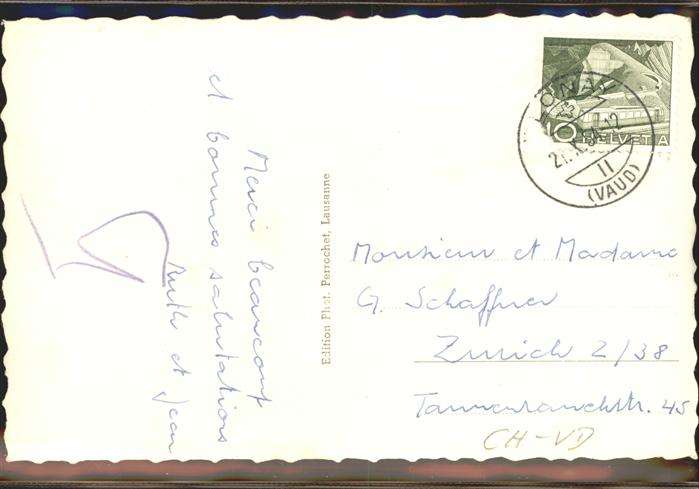 Merci beaucoup
et bonnes salutations
Ruth et Jean
Edition Phot. Perrochet, Lausanne
10 HELVETIA
(VAUD)
Monsieur et Madame
G. Schaffner
Zürich 2/38
Tannenrauchstr. 45
CH-VD